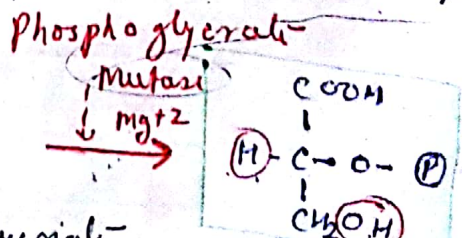 Phosphoglycerate
Mutase
mg+2
COOH
H - C - O - P
CH2OH